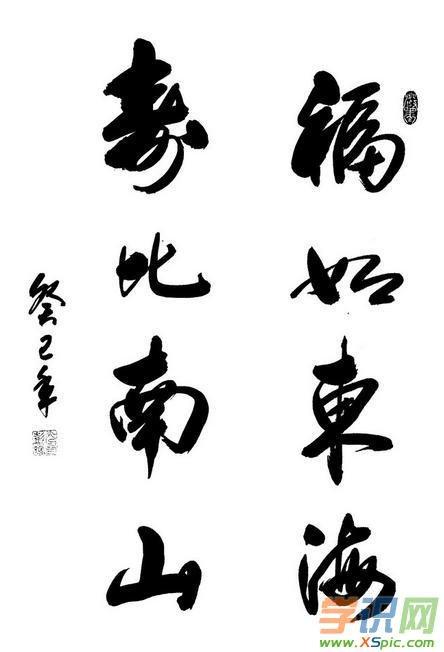 福如東海
寿比南山
癸巳年
学识网
www.XSpic.com